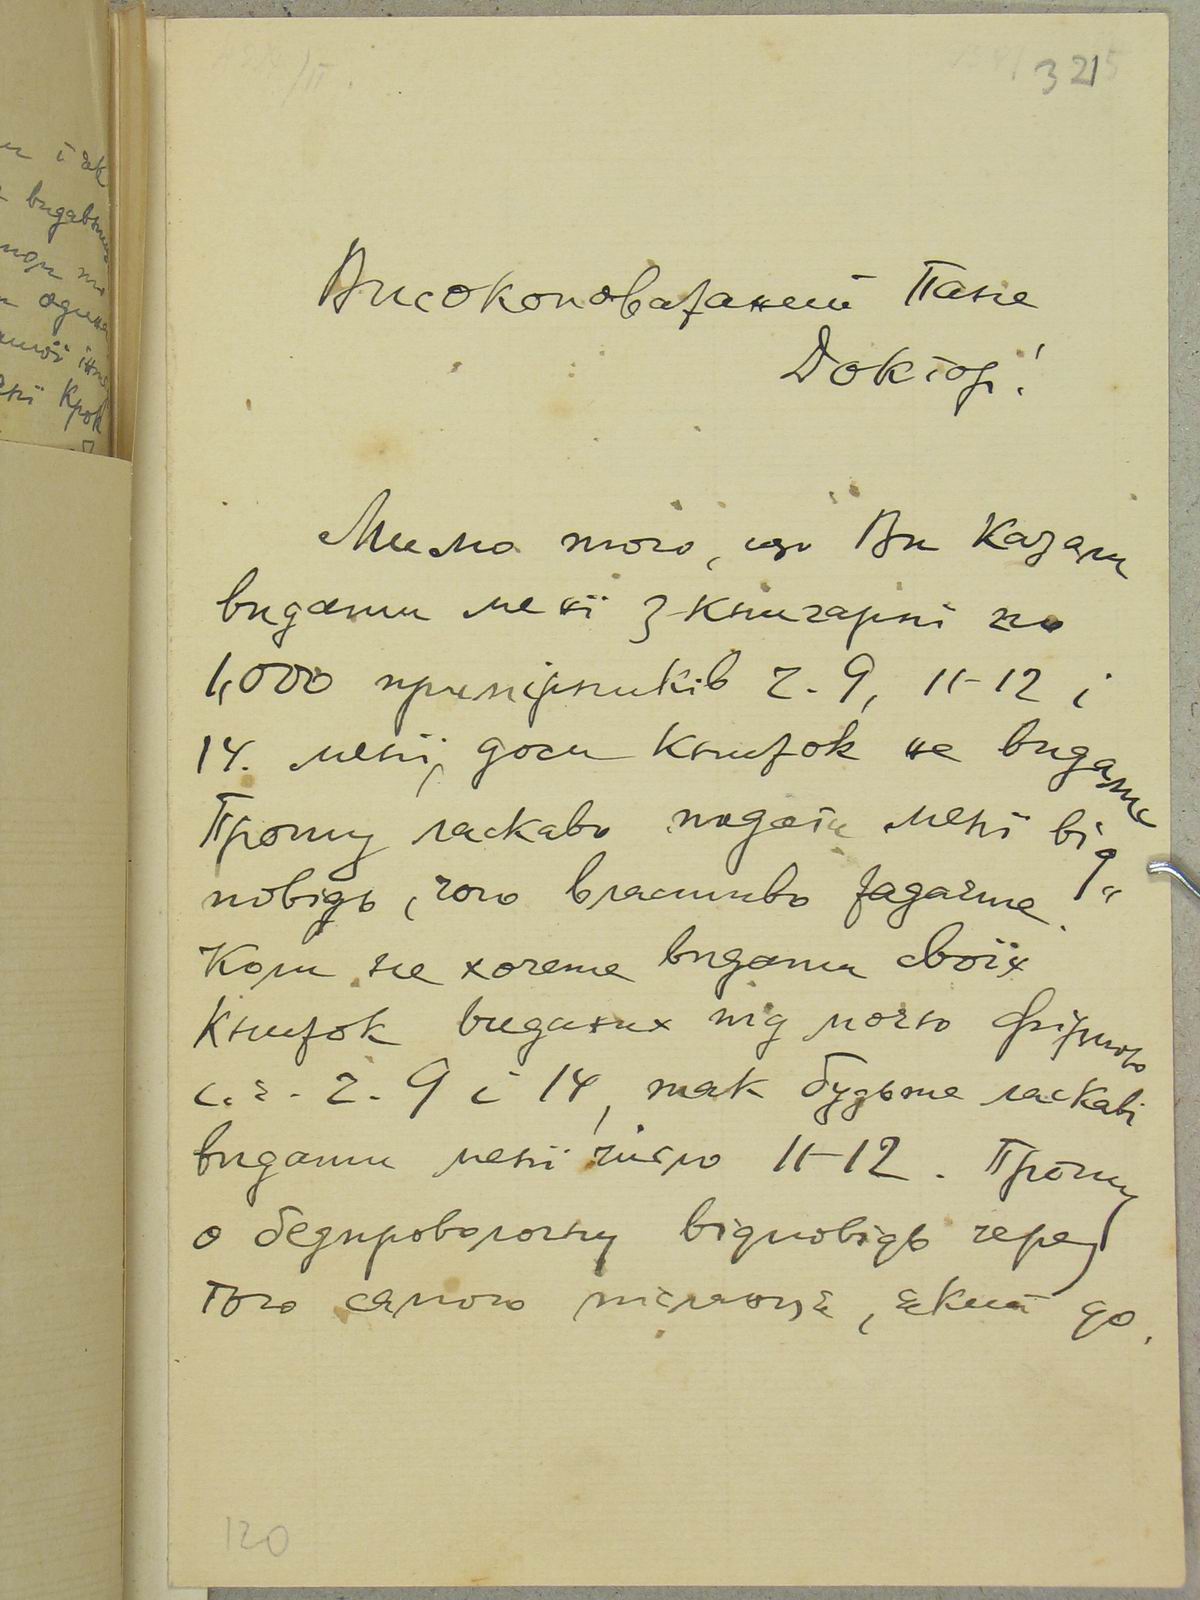 321
і як
Високоповажаний Пане
Докторі!
Мимо того, що Ви казали
видати мені з книгарні по
1,000 примірників ч. 9, 11-12 і
14. мені, доси книжок не видано
Прошу ласкаво подати мені від„
повідь, чого властиво жадаєте.
Коли не хочете видати своїх
книжок виданих під моєю фірмою
с. є. ч. 9 і 14, так будьте ласкаві
видати мені число 11-12. Прошу
о безпроволочну відповідь через
того самого післанця, який до.
120